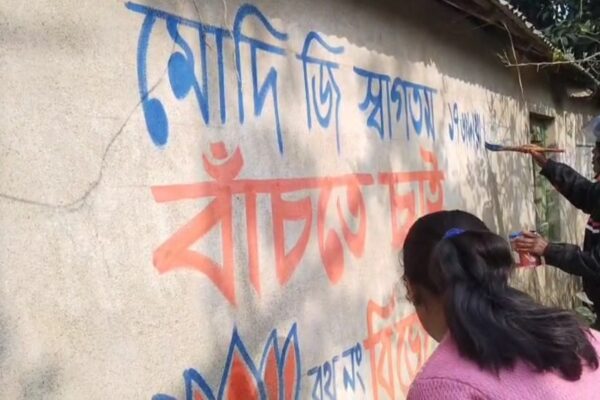 মোদি জি স্বাগতম
বাঁচতে চাই
বুথ নং